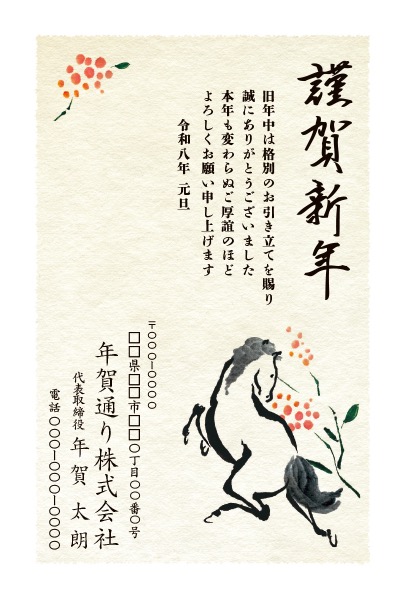 謹賀新年
旧年中は格別のお引き立てを賜り
誠にありがとうございました
本年も変わらぬご厚誼のほど
よろしくお願い申し上げます
令和八年 元旦
〒○○○-○○○○
□□県□□市□□○丁目○○番○号
年賀通り株式会社
代表取締役 年賀 太朗
電話 ○○○-○○○-○○○○